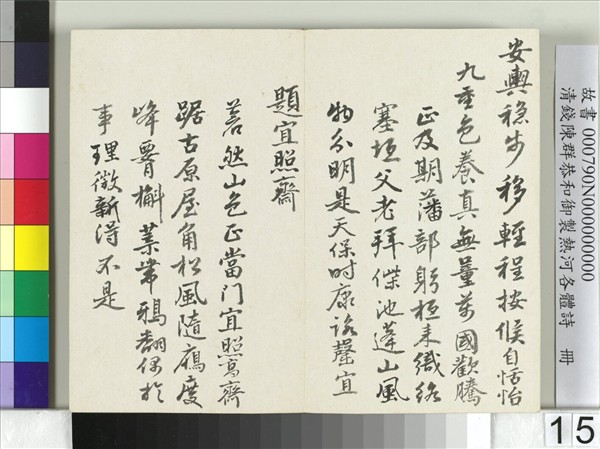 安輿穩步移輕程按候自恬怡
九重色養真無量萬國歡騰
正及期藩部躬桓来織絡
塞垣父老拜傞池蓬山風
物分明是天保时康詠罄宜
題宜照齋
蒼然山色正當门宜照高齋
踞古原屋角松風隨鴈度
峰脊槲葉帶鴉翻偶於
事理徵新得不是
故書 000790N000000000
清錢陳群恭和御製熱河各體詩 冊
15